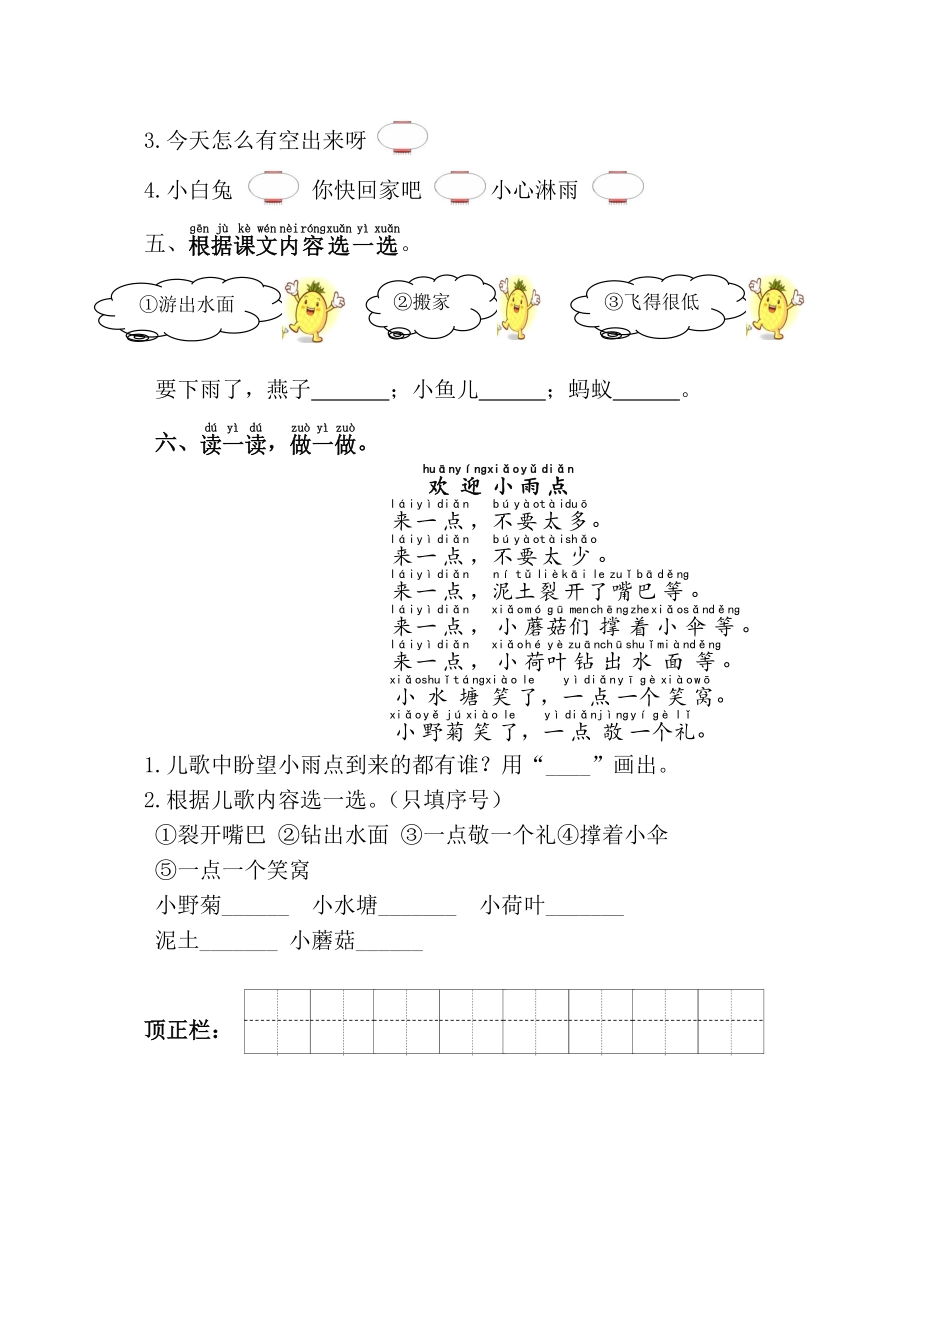 3.今天怎么有空出来呀
4.小白兔 你快回家吧 小心淋雨
gēn jù kè wén nèi róng xuǎn yì xuǎn
五、根据课文内容选一选。
①游出水面 ②搬家 ③飞得很低
要下雨了，燕子_______；小鱼儿______；蚂蚁______。
dú yì dú zuò yì zuò
六、读一读，做一做。
huānyíngxiǎoyǔdiǎn
欢迎小雨点
láiyìdiǎn búyàotàiduō
来一点，不要太多。
láiyìdiǎn búyàotàishǎo
来一点，不要太少。
láiyìdiǎn nítǔlièkāilezuǐbāděng
来一点，泥土裂开了嘴巴等。
láiyìdiǎn xiǎomógūmenchēngzhexiǎosǎnděng
来一点，小蘑菇们撑着小伞等。
láiyìdiǎn xiǎohéyèzuānchūshuǐmiànděng
来一点，小荷叶钻出水面等。
xiǎoshuǐtángxiàole yìdiǎnyīgèxiàowō
小水塘笑了，一点一个笑窝。
xiǎoyějúxiàole yìdiǎnjìngyígèlǐ
小野菊笑了，一点敬一个礼。
1.儿歌中盼望小雨点到来的都有谁？用“____”画出。
2.根据儿歌内容选一选。（只填序号）
①裂开嘴巴 ②钻出水面 ③一点敬一个礼④撑着小伞
⑤一点一个笑窝
小野菊______ 小水塘_______ 小荷叶_______
泥土_______ 小蘑菇______
顶正栏：